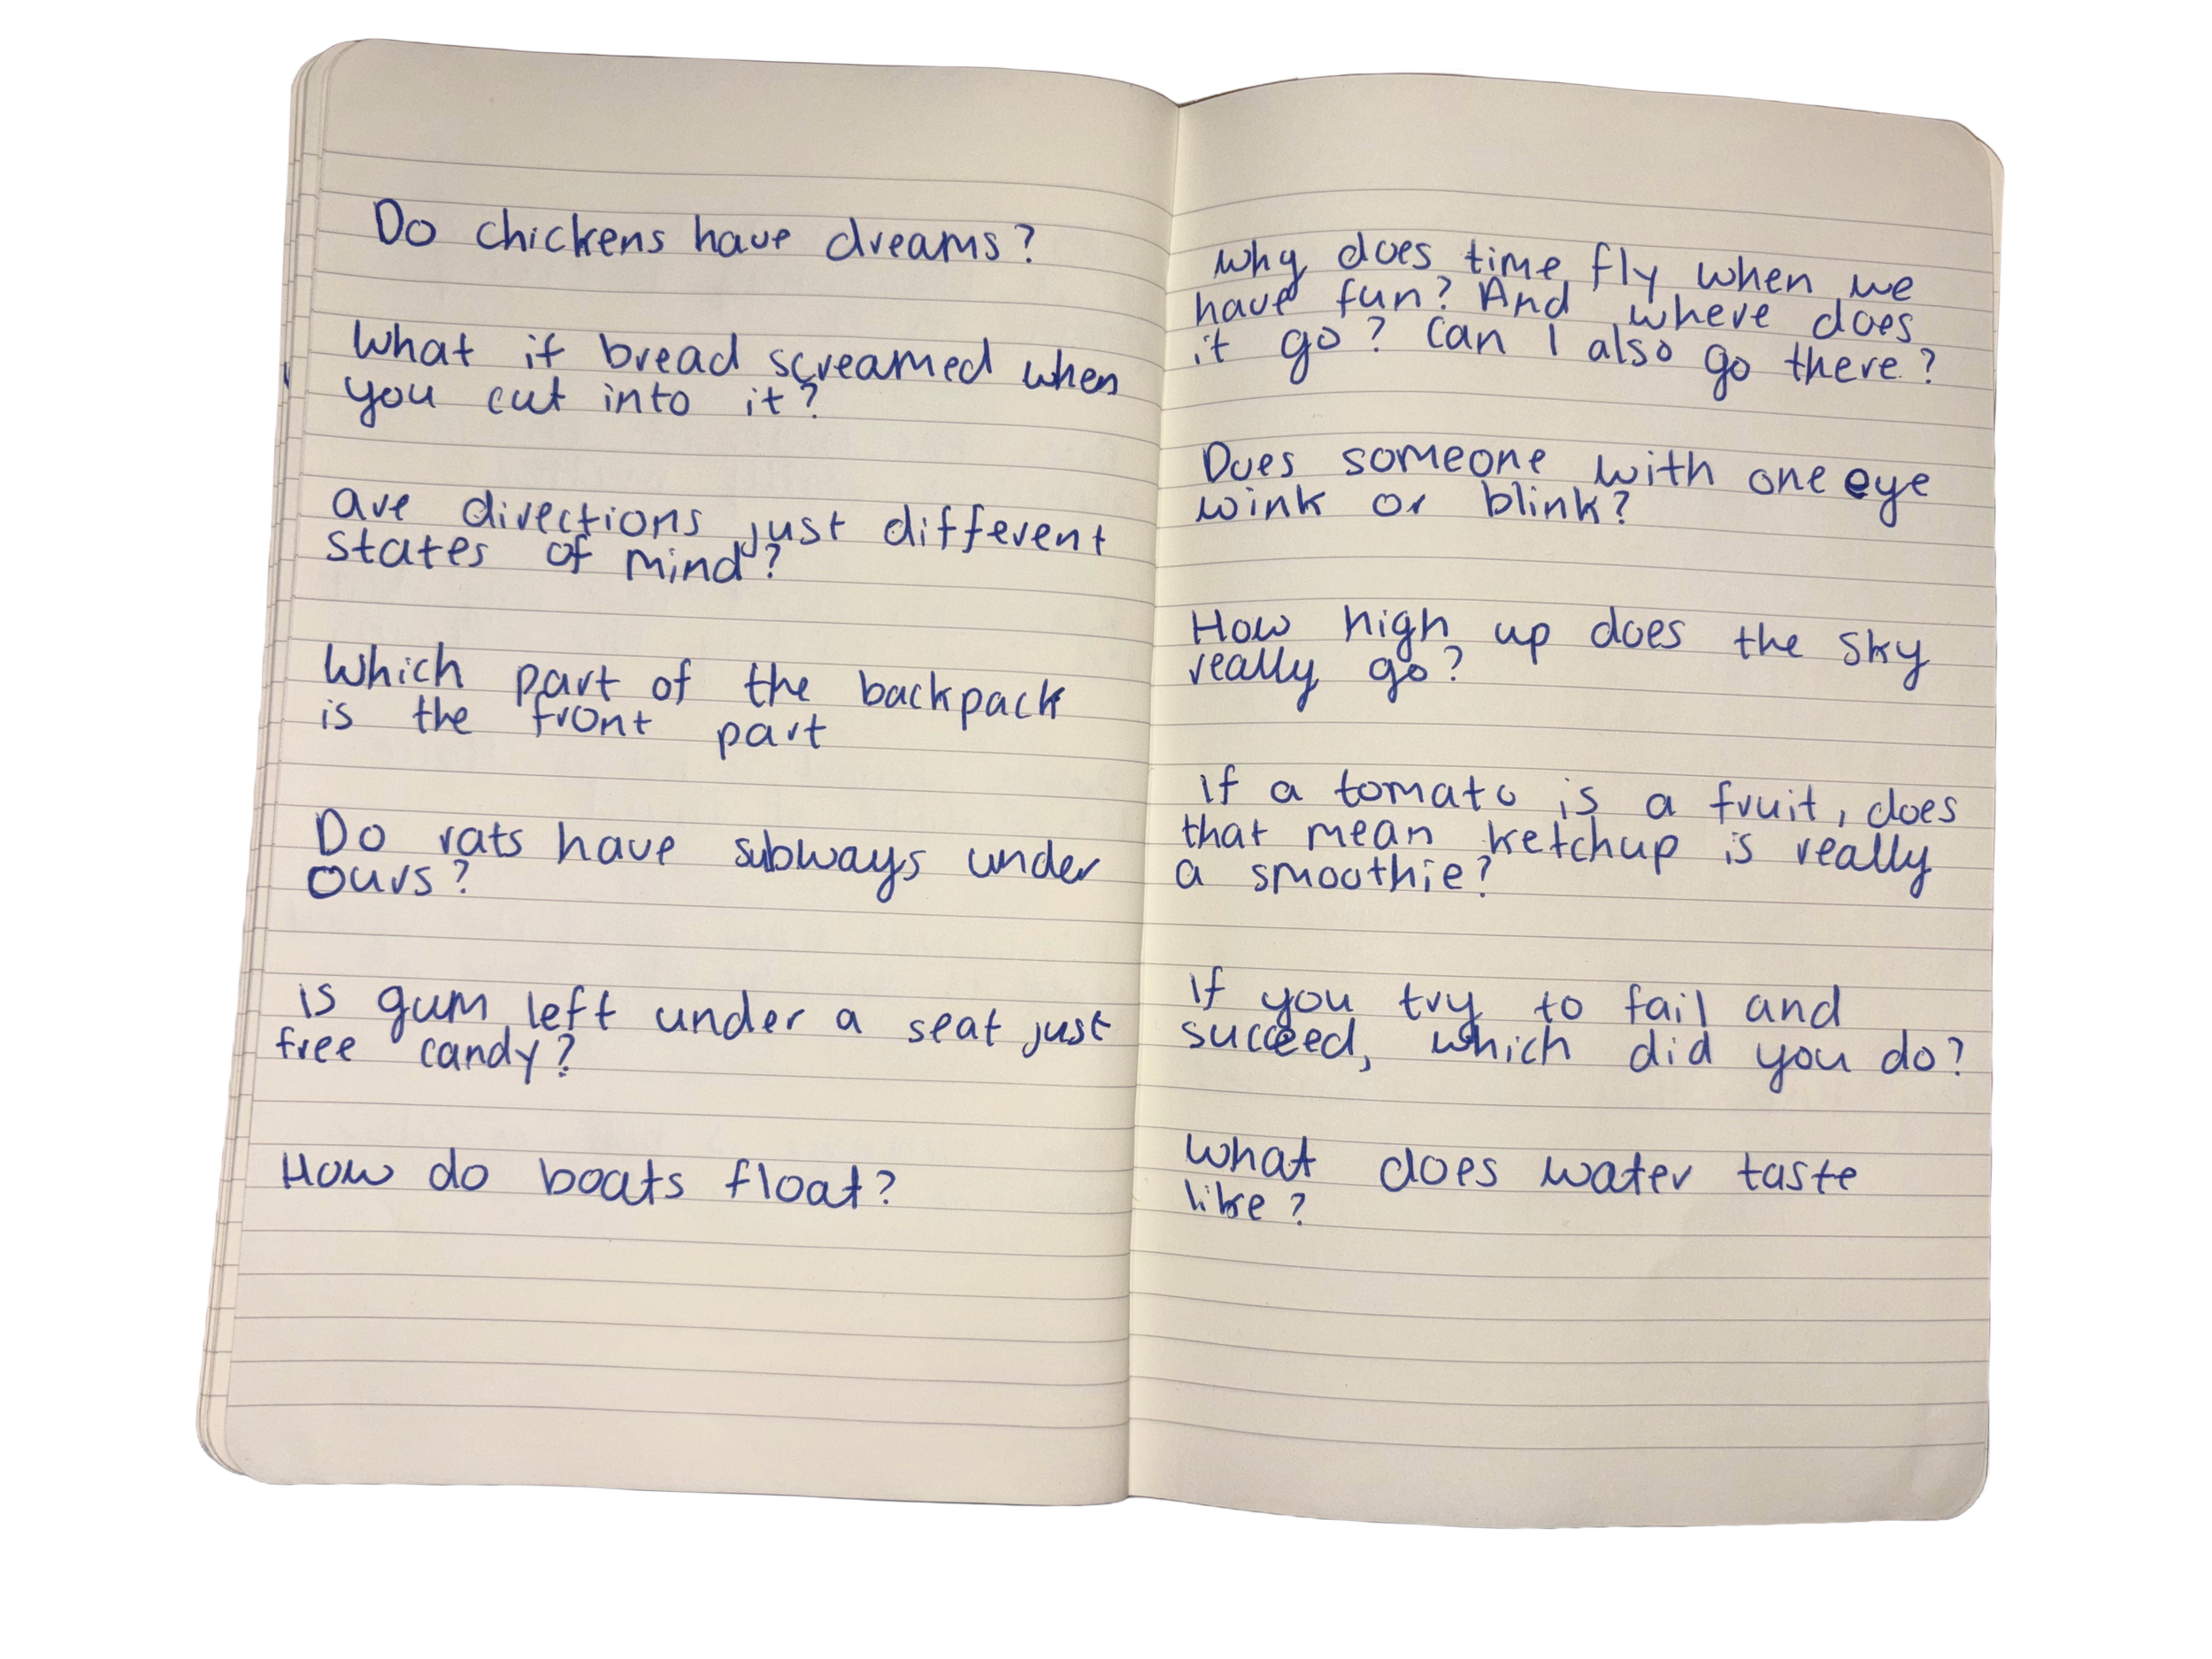 Do chickens have dreams?
What if bread screamed when
you cut into it?
are directions just different
states of mind?
Which part of the backpack
is the front part
Do rats have subways under
ours?
is gum left under a seat just
free candy?
How do boats float?
Why does time fly when we
have fun? And where does
it go? Can I also go there?
Does someone with one eye
wink or blink?
How high up does the sky
really go?
If a tomato is a fruit, does
that mean ketchup is really
a smoothie?
If you try to fail and
succeed, which did you do?
What does water taste
like?